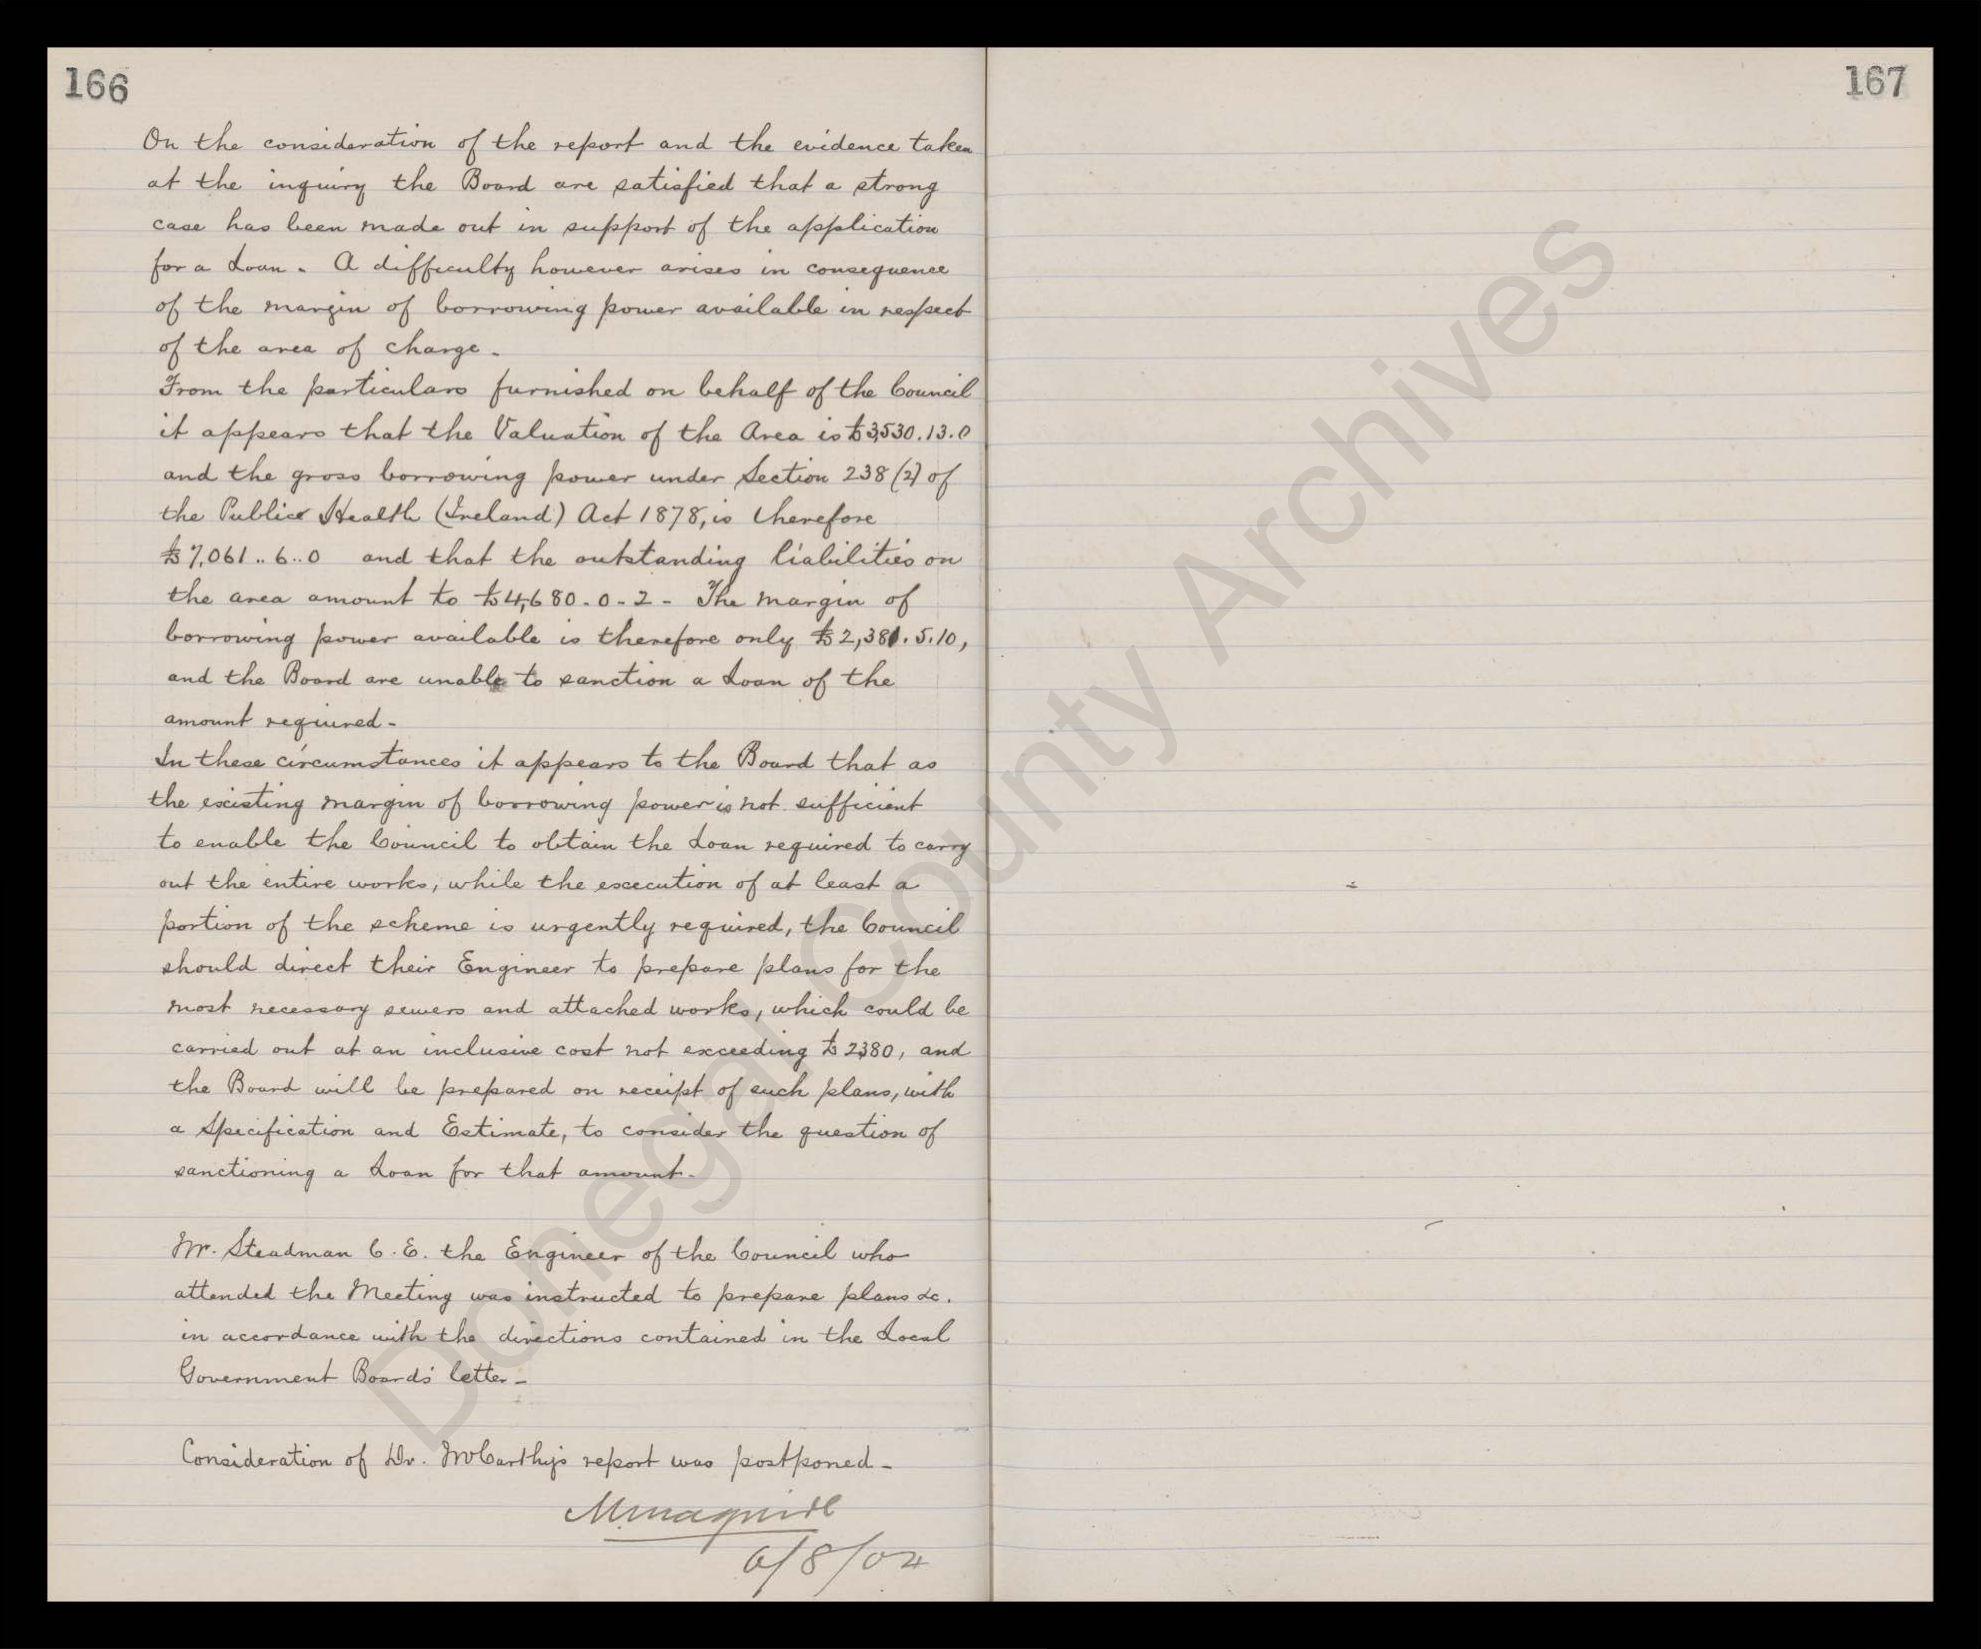 166
On the consideration of the report and the evidence taken
at the inquiry the Board are satisfied that a strong
case has been made out in support of the application
for a Loan. A difficulty however arises in consequence
of the margin of borrowing power available in respect
of the area of charge.
From the particulars furnished on behalf of the Council
it appears that the Valuation of the Area is £3,530.13.0
and the gross borrowing power under Section 238(2) of
the Public Health (Ireland) Act 1878, is therefore
£7,061..6..0 and that the outstanding liabilities on
the area amount to £4,680-0-2- The margin of
borrowing power available is therefore only £2,381.5.10,
and the Board are unable to sanction a Loan of the
amount required-
In these circumstances it appears to the Board that as
the existing margin of borrowing power is not sufficient
to enable the Council to obtain the Loan required to carry
out the entire works, while the execution of at least a
portion of the scheme is urgently required, the Council
should direct their Engineer to prepare plans for the
most necessary sewers and attached works, which could be
carried out at an inclusive cost not exceeding £2380, and
the Board will be prepared on receipt of such plans, with
a Specification and Estimate, to consider the question of
sanctioning a Loan for that amount-
Mr. Steadman C.E. the Engineer of the Council who
attended the Meeting was instructed to prepare plans &c.
in accordance with the directions contained in the Local
Government Boards' letter-
Consideration of Dr. McCarthy's report was postponed-
M. Maguire
6/8/04
167
Donegal County Archives